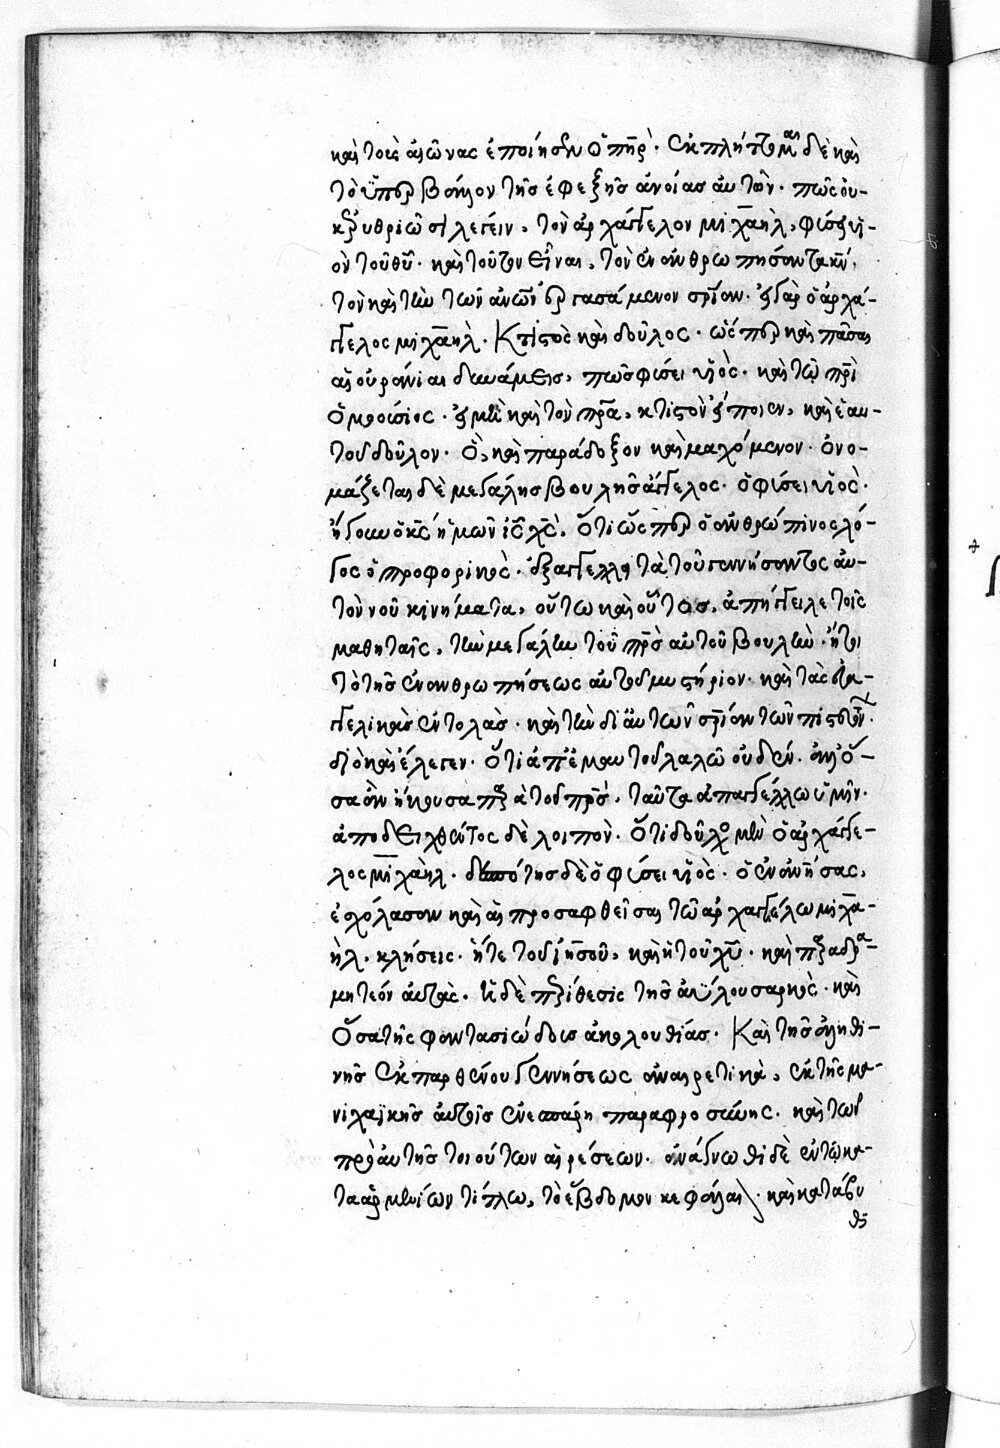 καὶ τοὺς αἰῶνας ἐποίησεν ὁ πηρ. ἐκπλήττομαι δὲ καὶ
τὸ ὑπερβάλλον τῆς ἐφεξῆς ἀνοίας αὐτῶν. πῶς οὐ-
κ ἐρυθριῶσι λέγειν, τὸν ἀρχάγγελον μιχαὴλ, φύσει υἱ-
ὸν τοῦ θυ. καὶ τοῦτον εἶναι, τὸν ἐνανθρωπήσαντα
τὸν καὶ τὴν τῶν ἀνων ἐργασάμενον σρίαν. εἰ γὰρ ὁ ἀρχά-
γγελος μιχαὴλ. κτιστὸς καὶ δοῦλος. ὥσπερ καὶ πᾶσαι
αἱ οὐράνιαι δυνάμεις, πῶς φύσει υἱὸς. καὶ τῷ πρὶ
ὁμοούσιος. εἰ μὴ καὶ τὸν πρα, κτιστὸν εἴποιεν, καὶ ἑαυ-
τοῦ δοῦλον. ὃ, καὶ παράδοξον καὶ μαχόμενον. ὀνο-
μάζεται δὲ μεγάλης βουλῆς ἄγγελος. ὁ φύσει υἱὸς.
ἤγουν ὁ κς ἡμῶν ις χς. ὅτι ὥσπερ ὁ ἀνθρώπινος λό-
γος ὁ προφορικὸς. ἐξαγγέλλει τὰ τοῦ γεννήσαντος αὐ-
τὸν νοῦ κινήματα, οὕτω καὶ οὗτος, ἀπήγγειλε τοῖς
μαθηταῖς, τὴν μεγάλην τοῦ πρς αὐτοῦ βουλὴν. ἤτοι
τὸ τῆς ἐνανθρωπήσεως αὐτοῦ μυστήριον. καὶ τὰς εὐα-
γγελικὰς ἐντολὰς. καὶ τὴν δι αὐτῶν σρίαν τῶν πιστῶν.
διὸ καὶ ἔλεγεν. ὅτι ἀπ ἐμαυτοῦ λαλῶ οὐδέν. ἀλλ ὅ-
σα ἂν ἤκουσα παρὰ τοῦ πρς, ταῦτα ἀπαγγέλλω ὑμῖν.
ἀποδειχθέντος δὲ λοιπὸν. ὅτι δοῦλος μὲν ὁ ἀρχάγγε-
λος μιχαὴλ. δεσπότης δὲ ὁ φύσει υἱὸς. ὁ ἐνανήσας,
ἐσχόλασαν καὶ αἱ προσαφθεῖσαι τῷ ἀρχαγγέλω μιχα-
ὴλ, κλήσεις. ἥτε τοῦ ἰησοῦ, καὶ ἡ τοῦ χυ. καὶ παραδρα-
μητέον αὐτὰς. ἡ δὲ παράθεσις τῆς ἀΰλου σαρκὸς. καὶ
ὅσα τῆς φαντασιώδους ἀκολουθίας. καὶ τῆς ἀληθι-
νῆς ἐκ παρθένου γεννήσεως ἀναιρετικὰ, ἐκ τῆς μα-
νιχαϊκῆς αὐτοῖς ἐνεσπάρη παραφροσύνης. καὶ τῶν
πρὸ αὐτῆς τοιούτων αἱρέσεων. ἀνάγνωθι δὲ ἐν τῷ κα-
τὰ ἀρμενίων τίτλω, τὸ ἕβδομον κεφάλαι. καὶ καταβυ
θι